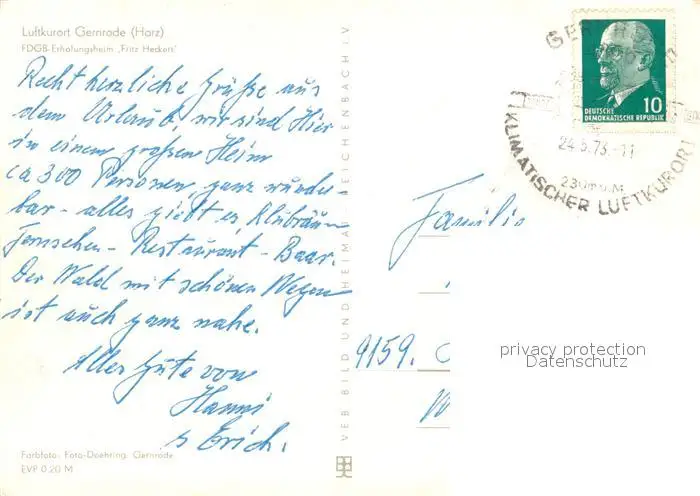 Luftkurort Gernrode (Harz)
FDGB-Erholungsheim „Fritz Heckert"
Recht herzliche Grüße aus
dem Urlaub, wir sind Hier
in einem großen Heim
ca 300 Personen, ganz wunder-
bar - alles giebt es, Klubräum
Fernsehen - Restaurant - Baar.
Der Wald mit schönen Wegen
ist auch ganz nahe.
Alles Gute von
Hanni
s Erich.
Farbfoto: Foto-Doehring, Gernrode
EVP 0.20 M
VEB BILD UND HEIMAT REICHENBACH I. V
DEUTSCHE
DEMOKRATISCHE REPUBLIK
10
24.5.73.-11
230m ü.M
KLIMATISCHER LUFTKURORT
Familie
9159.
privacy protection
Datenschutz